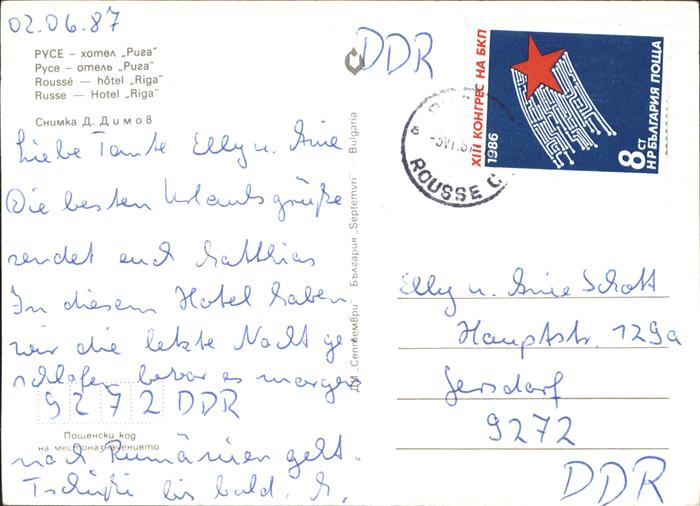 02.06.87
РУСЕ – хотел „Рига"
Русе – отель „Рига"
Roussé — hôtel „Riga"
Russe — Hotel „Riga"
Снимка Д. Димов
Liebe Tante Elly u. Arie
Die besten Urlaubsgrüße
sendet euch Matthias
In diesem Hotel haben
wir die letzte Nacht ge-
schlafen bevor es morgen
9272 DDR
Пощенски код
на местоназначението
nach Rumänien geht.
Tschüß bis bald. M.
ДП „Септември" България „Septemvri" Bulgaria
DDR
XIII КОНГРЕС НА БКП
1986
8 СТ
НР БЪЛГАРИЯ ПОЩА
ROUSSE
Elly u. Arie Schott
Hauptstr. 129a
Gersdorf
9272
DDR